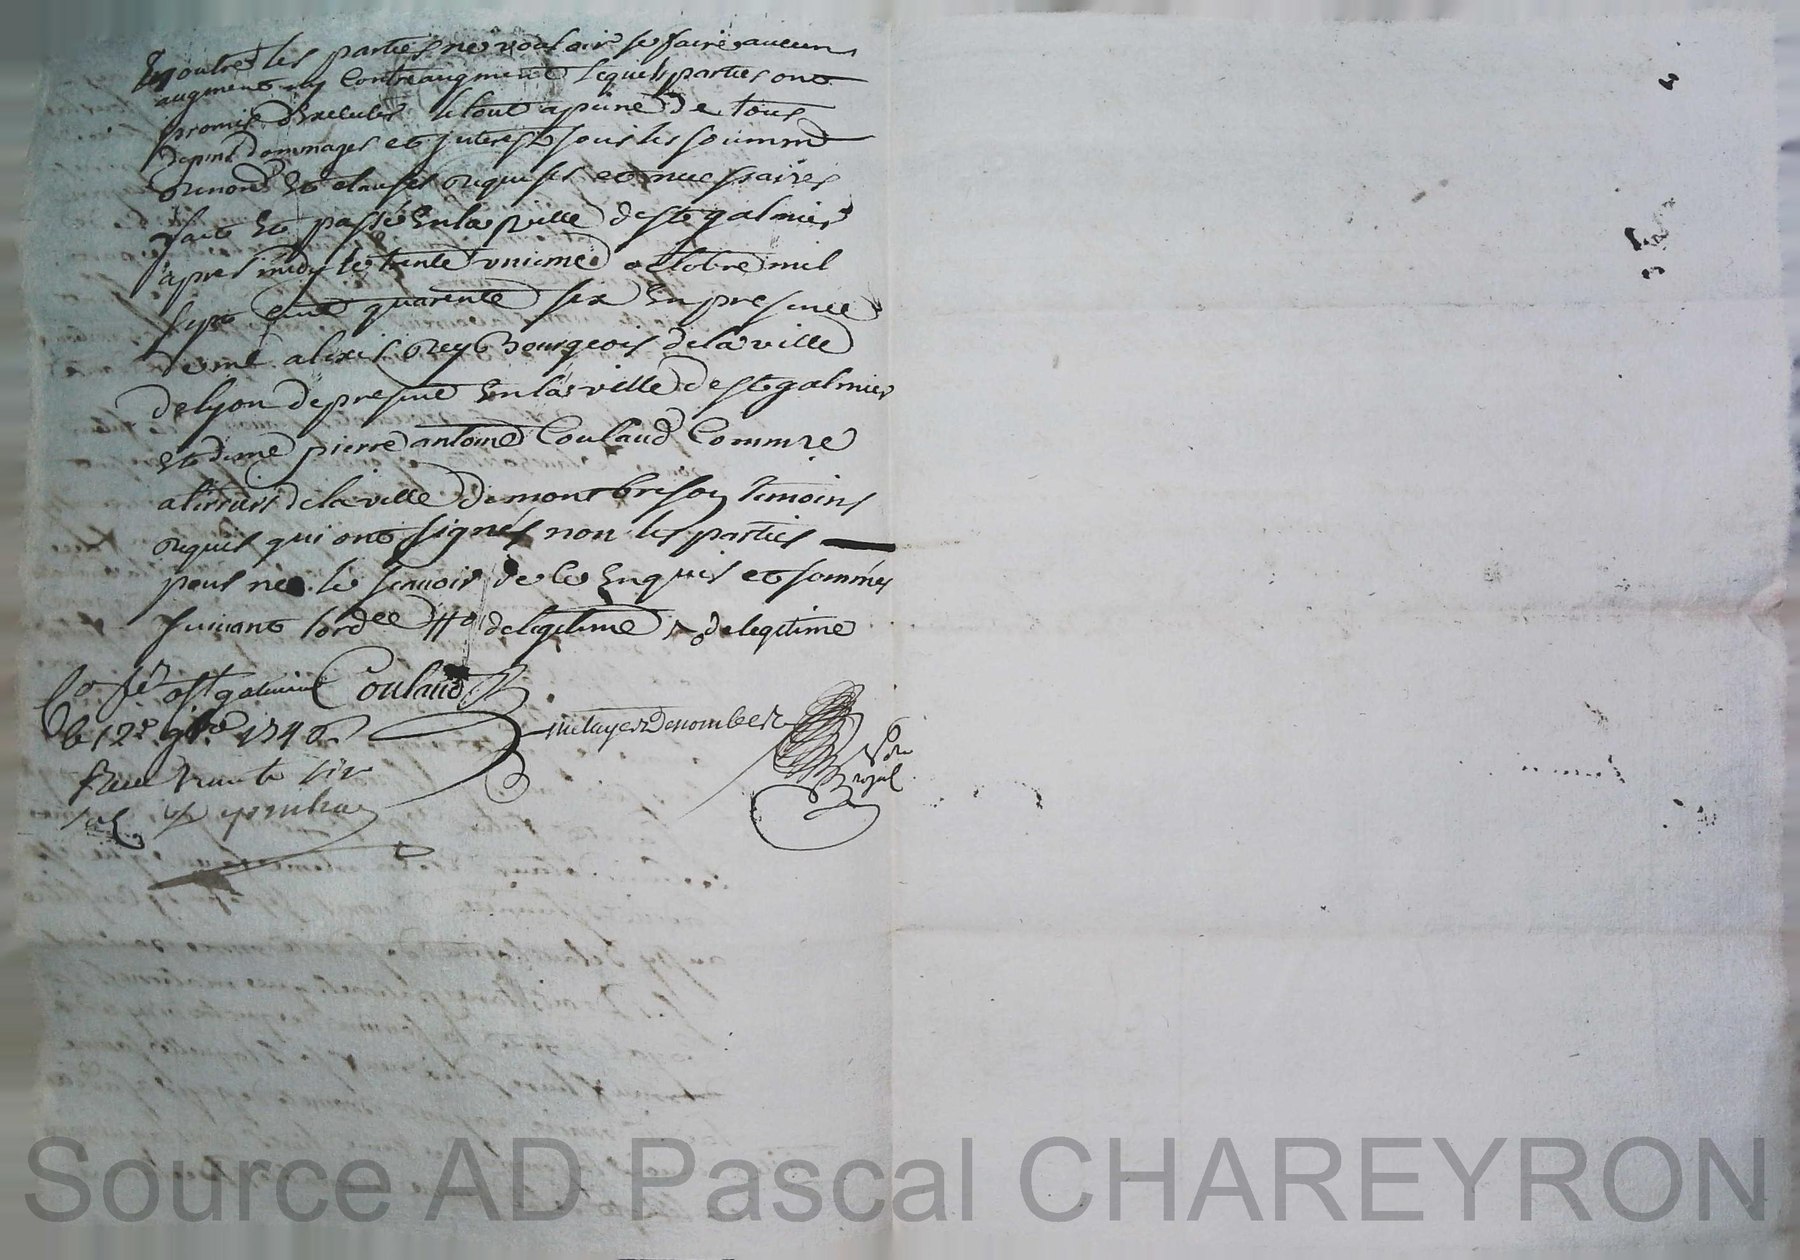 En outre les parties ne vouloir se faire aucun
augment ny Contreaugment lequel parties ont
promis dExecuter le tout a peine de tous
depens dommages et interest sous les soummd
Renond Et clauses Requises et necessaires
fait Et passé En la ville de St galmier
apres midy le trente unieme octobre mil
sept cent quarente six En presence
de me alexis Rey Bourgeois de la ville
de lyon de present En la ville de St galmier
Et de me pierre antoine Coulaud Commre
a terriers de la ville de montbrison temoins
Requis qui ont signés non les parties
pour ne le scauoir de ce Enquis et sommés
suiuant lord.ee tto de legitime de legitime
a St galmier Coulaud
le 12e 9bre 1746
metayer Denombel
Nore
royal
Receu trente
Source AD Pascal CHAREYRON